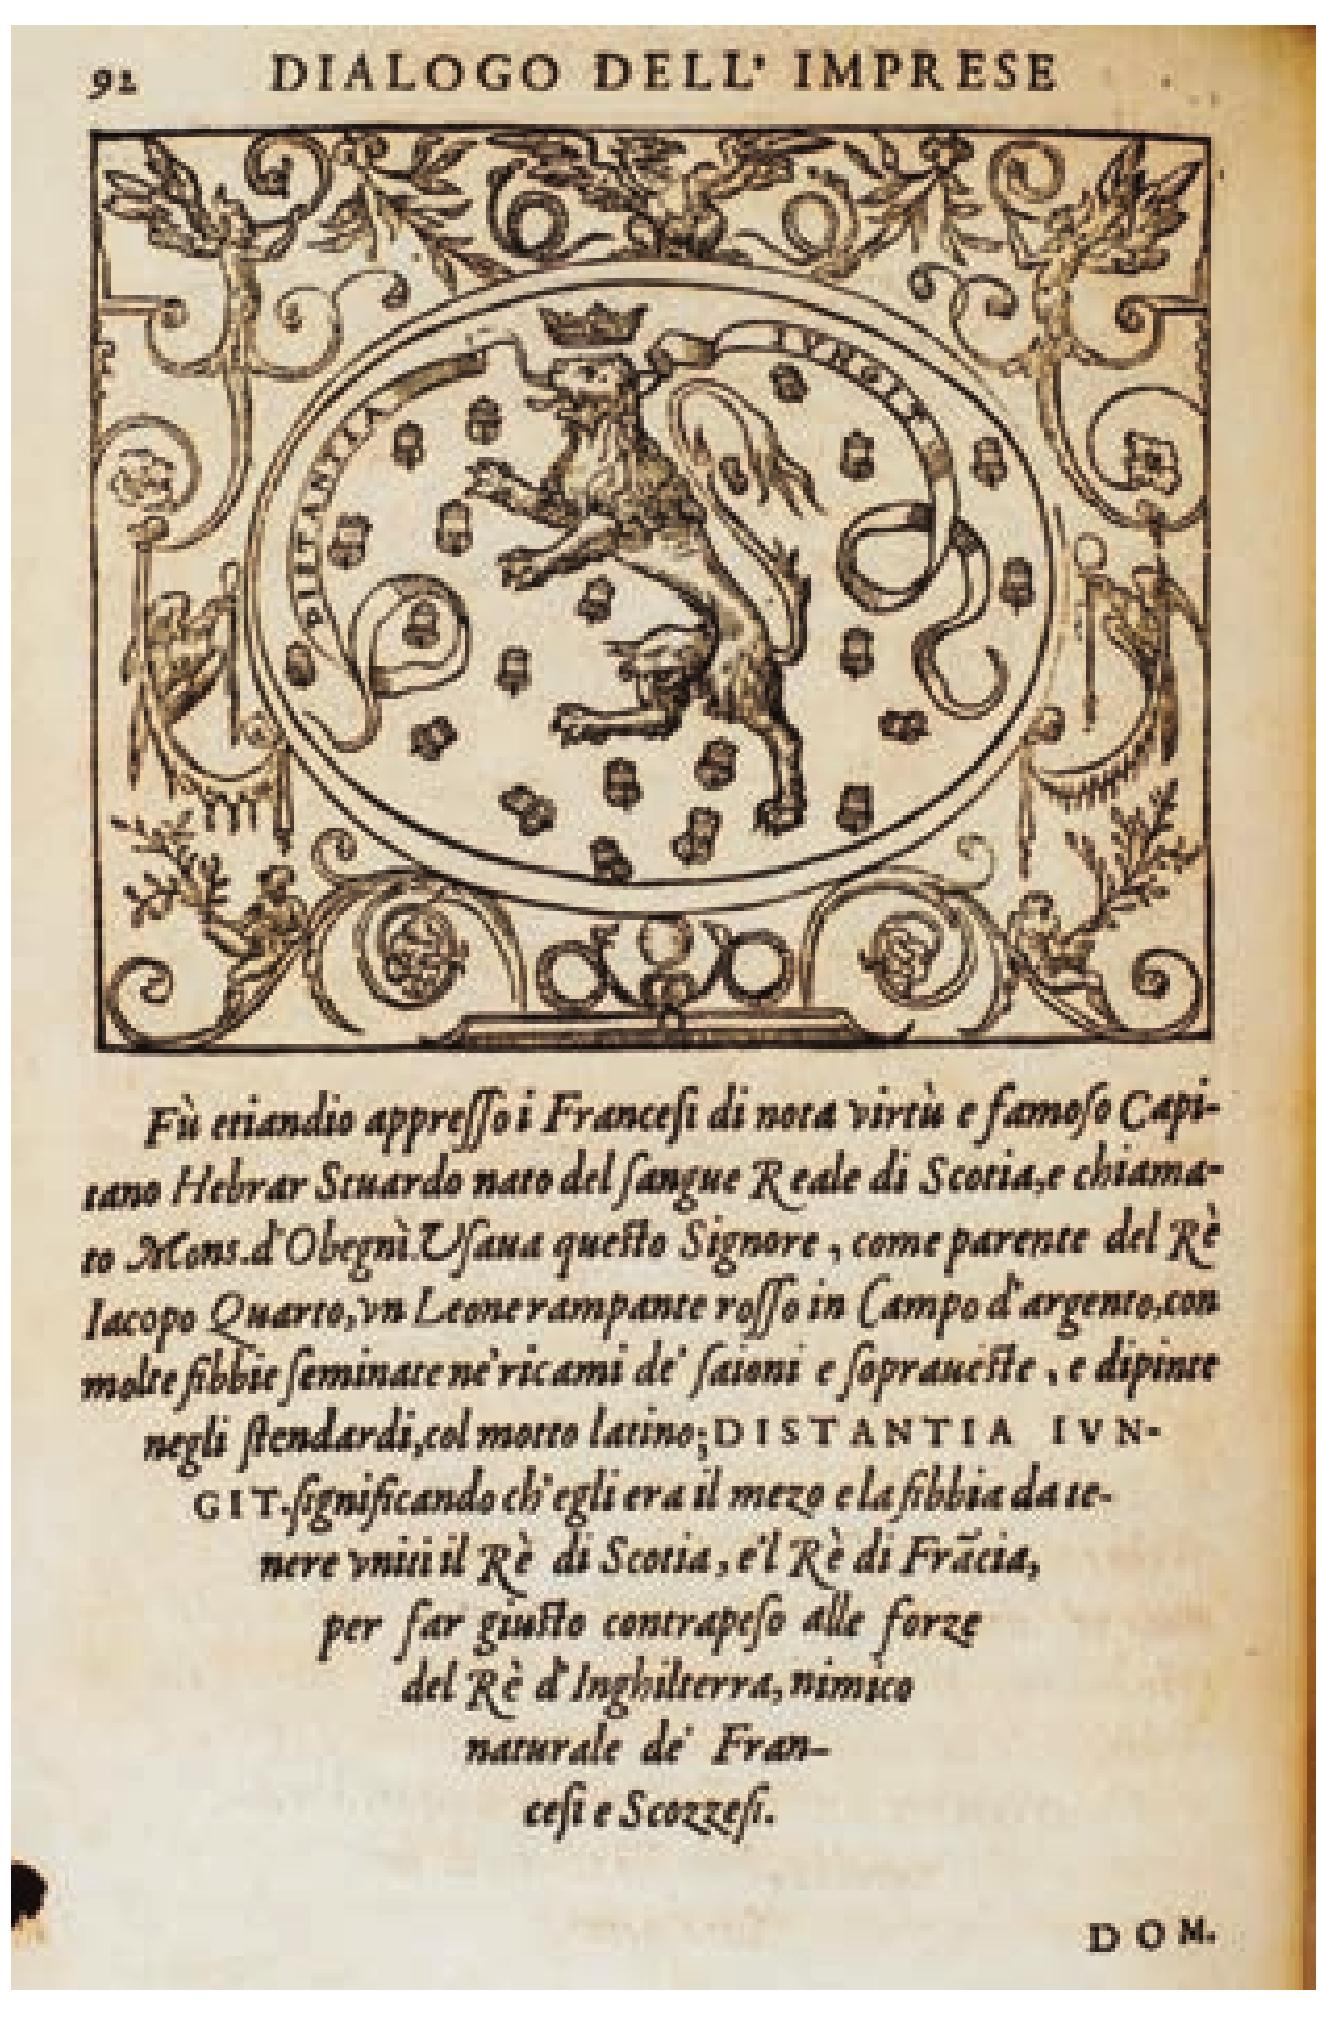 92 DIALOGO DELL' IMPRESE
DISTANTIA IVNGIT
Fù etiandio appreſſo i Franceſi di nota virtù e famoſo Capi-
tano Hebrar Stuardo nato del ſangue Reale di Scotia, e chiama-
to Mons. d'Obegnì. Vſaua queſto Signore, come parente del Rè
Iacopo Quarto, vn Leone rampante roſſo in Campo d'argento, con
molte fibbie ſeminate ne' ricami de' ſaioni e ſopraueſte, e dipinte
negli ſtendardi, col motto latino; DISTANTIA IVN-
GIT. ſignificando ch'egli era il mezo e la fibbia da te-
nere vniti il Rè di Scotia, e'l Rè di Frācia,
per far giuſto contrapeſo alle forze
del Rè d'Inghilterra, nimico
naturale de' Fran-
ceſi e Scozzeſi.
DOM.